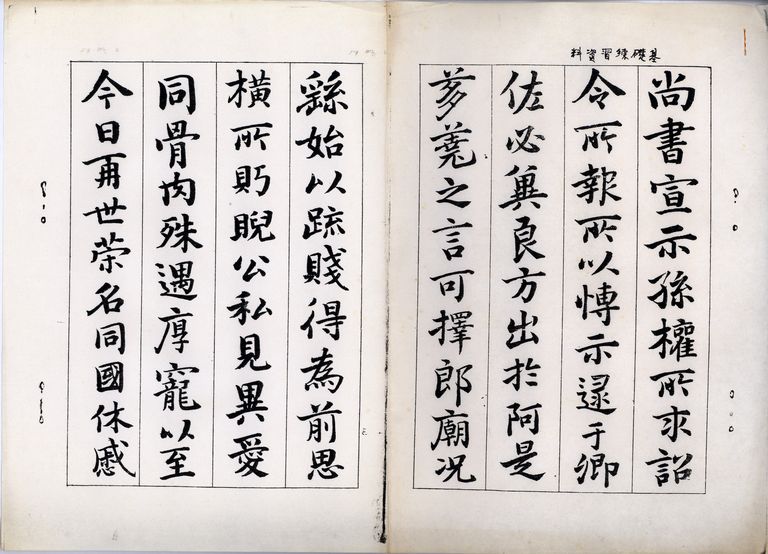 基礎練習資料
尚書宣示孫權所求詔
令所報所以博示逮于卿
佐必冀良方出於阿是
芻蕘之言可擇郎廟况
繇始以疏賤得為前思
橫所眄睨公私見異愛
同骨肉殊遇厚寵以至
今日再世榮名同國休慼